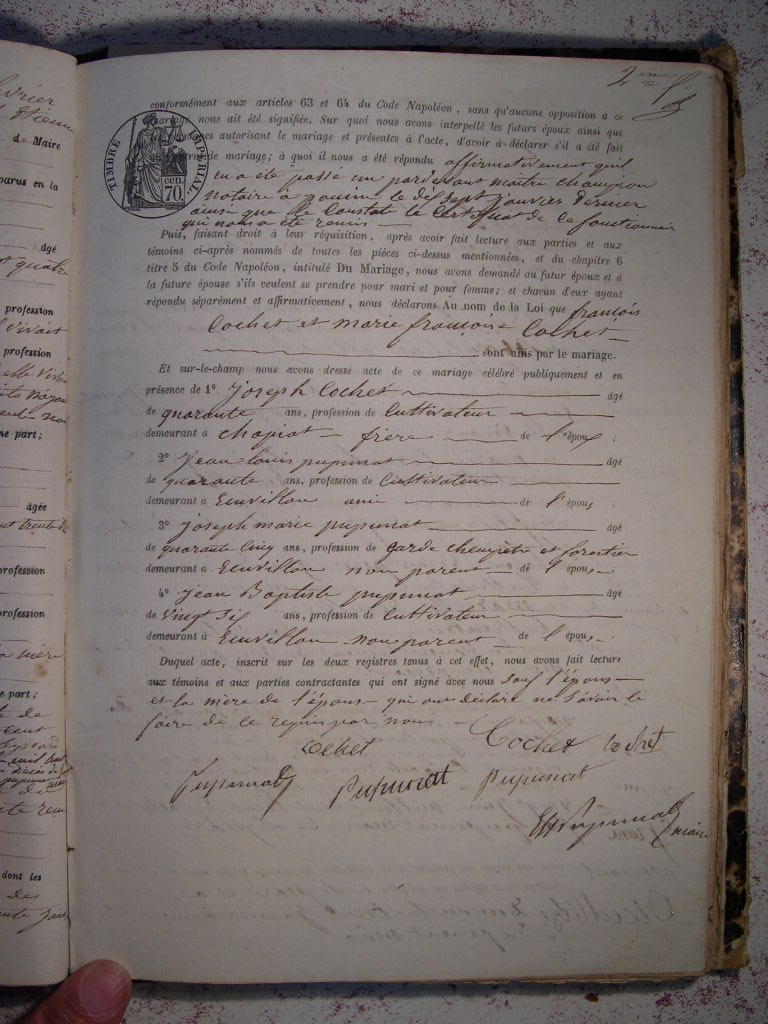 2eme
conformément aux articles 63 et 64 du Code Napoléon, sans qu'aucune opposition à ce
mariage nous ait été signifiée. Sur quoi nous avons interpellé les futurs époux ainsi que
personnes autorisant le mariage et présentes à l'acte, d'avoir à déclarer s'il a été fait
de mariage; à quoi il nous a été répondu affirmativement quil
en a été passé un pardevant maitre Champion
notaire à le dix sept janvier dernier
ainsi que le Constate le Certificat de ce fonctionnair
qui nous a été remis
TIMBRE IMPERIAL
cen. 70
Puis, faisant droit à leur réquisition, après avoir fait lecture aux parties et aux
témoins ci-après nommés de toutes les pièces ci-dessus mentionnées, et du chapitre 6
titre 5 du Code Napoléon, intitulé Du Mariage, nous avons demandé au futur époux et à
la future épouse s'ils veulent se prendre pour mari et pour femme; et chacun d'eux ayant
répondu séparément et affirmativement, nous déclarons Au nom de la Loi que françois
Cochet et marie françoise Cochet
sont unis par le mariage.
Et sur-le-champ nous avons dressé acte de ce mariage célébré publiquement et en
présence de 1° Joseph Cochet âgé
de quarante ans, profession de Cultivateur
demeurant à frère de l'époux;
2° Jean louis pupunat âgé
de quarante ans, profession de Cultivateur
demeurant à ami de l'épous
3° joseph marie pupunat âgé
de quarante Cinq ans, profession de garde champêtre et forestier
demeurant à non parent de l'épous
4° jean Baptiste pupunat âgé
de Vingt Six ans, profession de Cultivateur
demeurant à non parent de l'épous
Duquel acte, inscrit sur les deux registres tenus à cet effet, nous avons fait lecture
aux témoins et aux parties contractantes qui ont signé avec nous Sauf l'épouse
et la mère de l'épouse qui ont déclaré ne Savoir le
faire de ce requis par nous
Cochet Cochet Cochet
Pupunat pupunat pupunat
Pupunat maire
de Maire
parus en la
âgé
profession
profession
ne part;
âgée
profession
profession
la mère
e part;
dont les